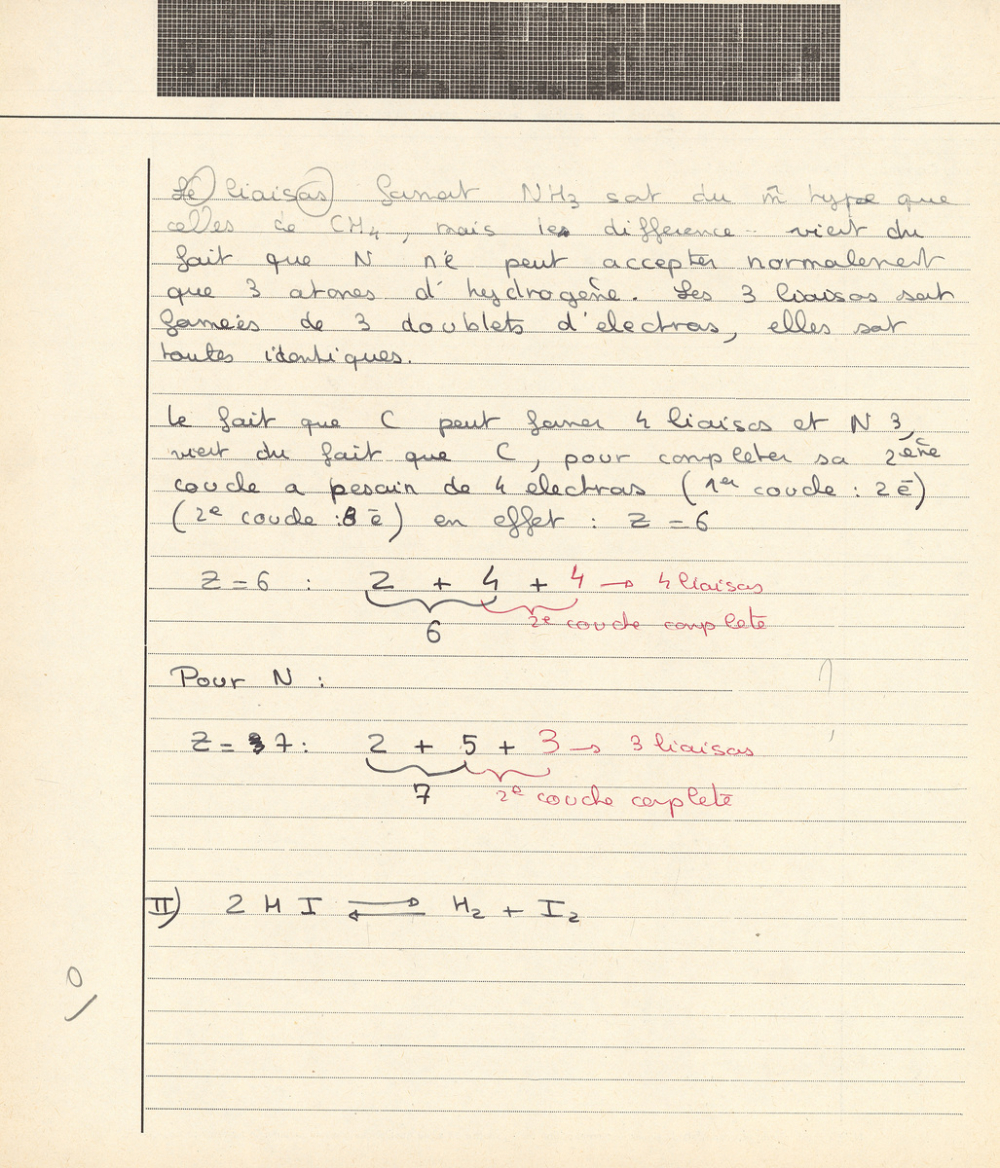 Le liaisos formant NH3 sont du m̄ type que
celles de CH4, mais la différence vient du
fait que N ne peut accepter normalement
que 3 atomes d'hydrogène. Les 3 liaisos sont
formées de 3 doublets d'électros, elles sont
toutes identiques.
Le fait que C peut former 4 liaisos et N 3,
vient du fait que C, pour completer sa 2ème
couche a pesoin de 4 électros (1er couche : 2 ē)
(2e couche : 8 ē) en effet : Z = 6
Z = 6 : 2 + 4 + 4 → 4 liaisos
6 2e couche complète
Pour N :
Z = 7 : 2 + 5 + 3 → 3 liaisos
7 2e couche complète
II) 2 H I ⇌ H2 + I2
0